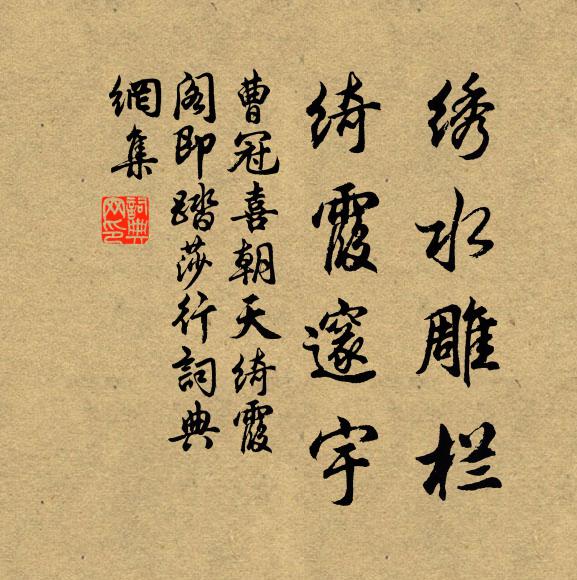 绣水雕栏
绮霞邃宇
曹冠喜朝天绮霞
阁即踏莎行詞典
網集
詞典
网印